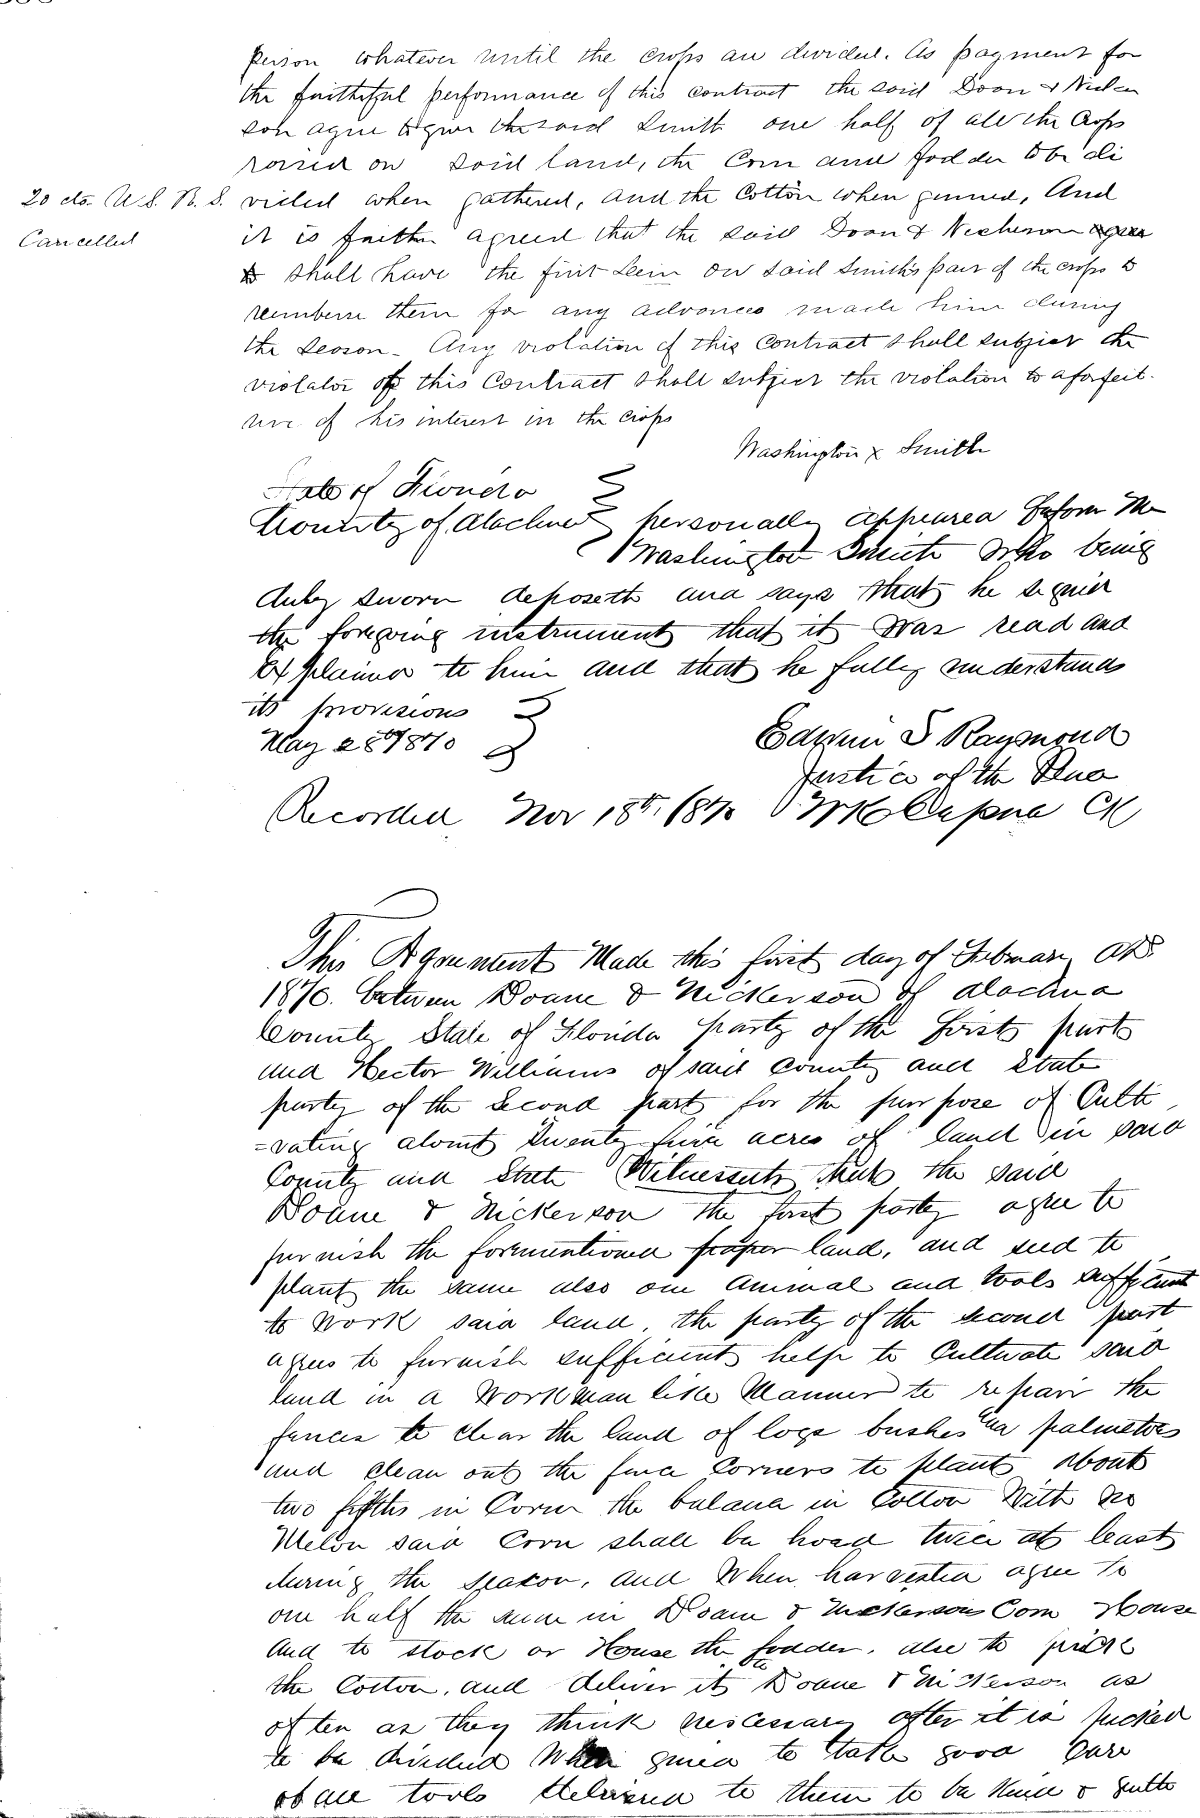 person whatever until the crops are divided. As payment for
the faithful performance of this contract the said Doan & Nicker
son agree to give the said Smith one half of all the crops
raised on said land, the Corn and fodder to be di
20 cts. U.S. R. S.
Cancelled
vided when gathered, and the Cotton when ginned, And
it is further agreed that the said Doan & Nickerson agree
to shall have the first lein on said Smith's part of the crops to
reimburse them for any advances made him during
the season - Any violation of this Contract shall subject the
violator of this Contract shall subject the violation to a forfeit-
ure of his interest in the crops
Washington x Smith
State of Florida
County of Alachua personally appeared before me
Washington Smith who being
duly sworn deposeth and says that he signed
the foregoing instrument that it was read and
explained to him and that he fully understands
its provisions
May 28th 1870
Edwin S Raymond
Justice of the Peace
Recorded Nov 18th, 1870 Clk
This Agreement Made this first day of Februar AD
1870. between Doane & Nickerson of Alachua
County State of Florida party of the first part
and Hector Williams of said County and State
party of the second part for the purpose of Culti
=vating about Twenty five acres of land in said
County and State Witnesseth that the said
Doane & Nickerson the first party agree to
furnish the formentioned proper land, and seed to
plant the same also one animal and tools sufficient
to work said land, the party of the second part
agrees to furnish sufficient help to Cultivate said
land in a Workman like Manner to repair the
fences to clear the land of logs bushes and palmetoes
and clean out the fence Corners to plant about
two fifths in Corn the balance in Cotton With no
Melon said Corn shall be hoed twice at least
during the season, and When harvested agree to
one half the same in Doane & Nickersons Corn House
and to stock or House the fodder, also to pick
the Cotton, and deliver it to Doane & Nickerson as
often as they think necessary after it is picked
to be divided When gined to take good Care
of all tools delivered to them to be kind & gentle